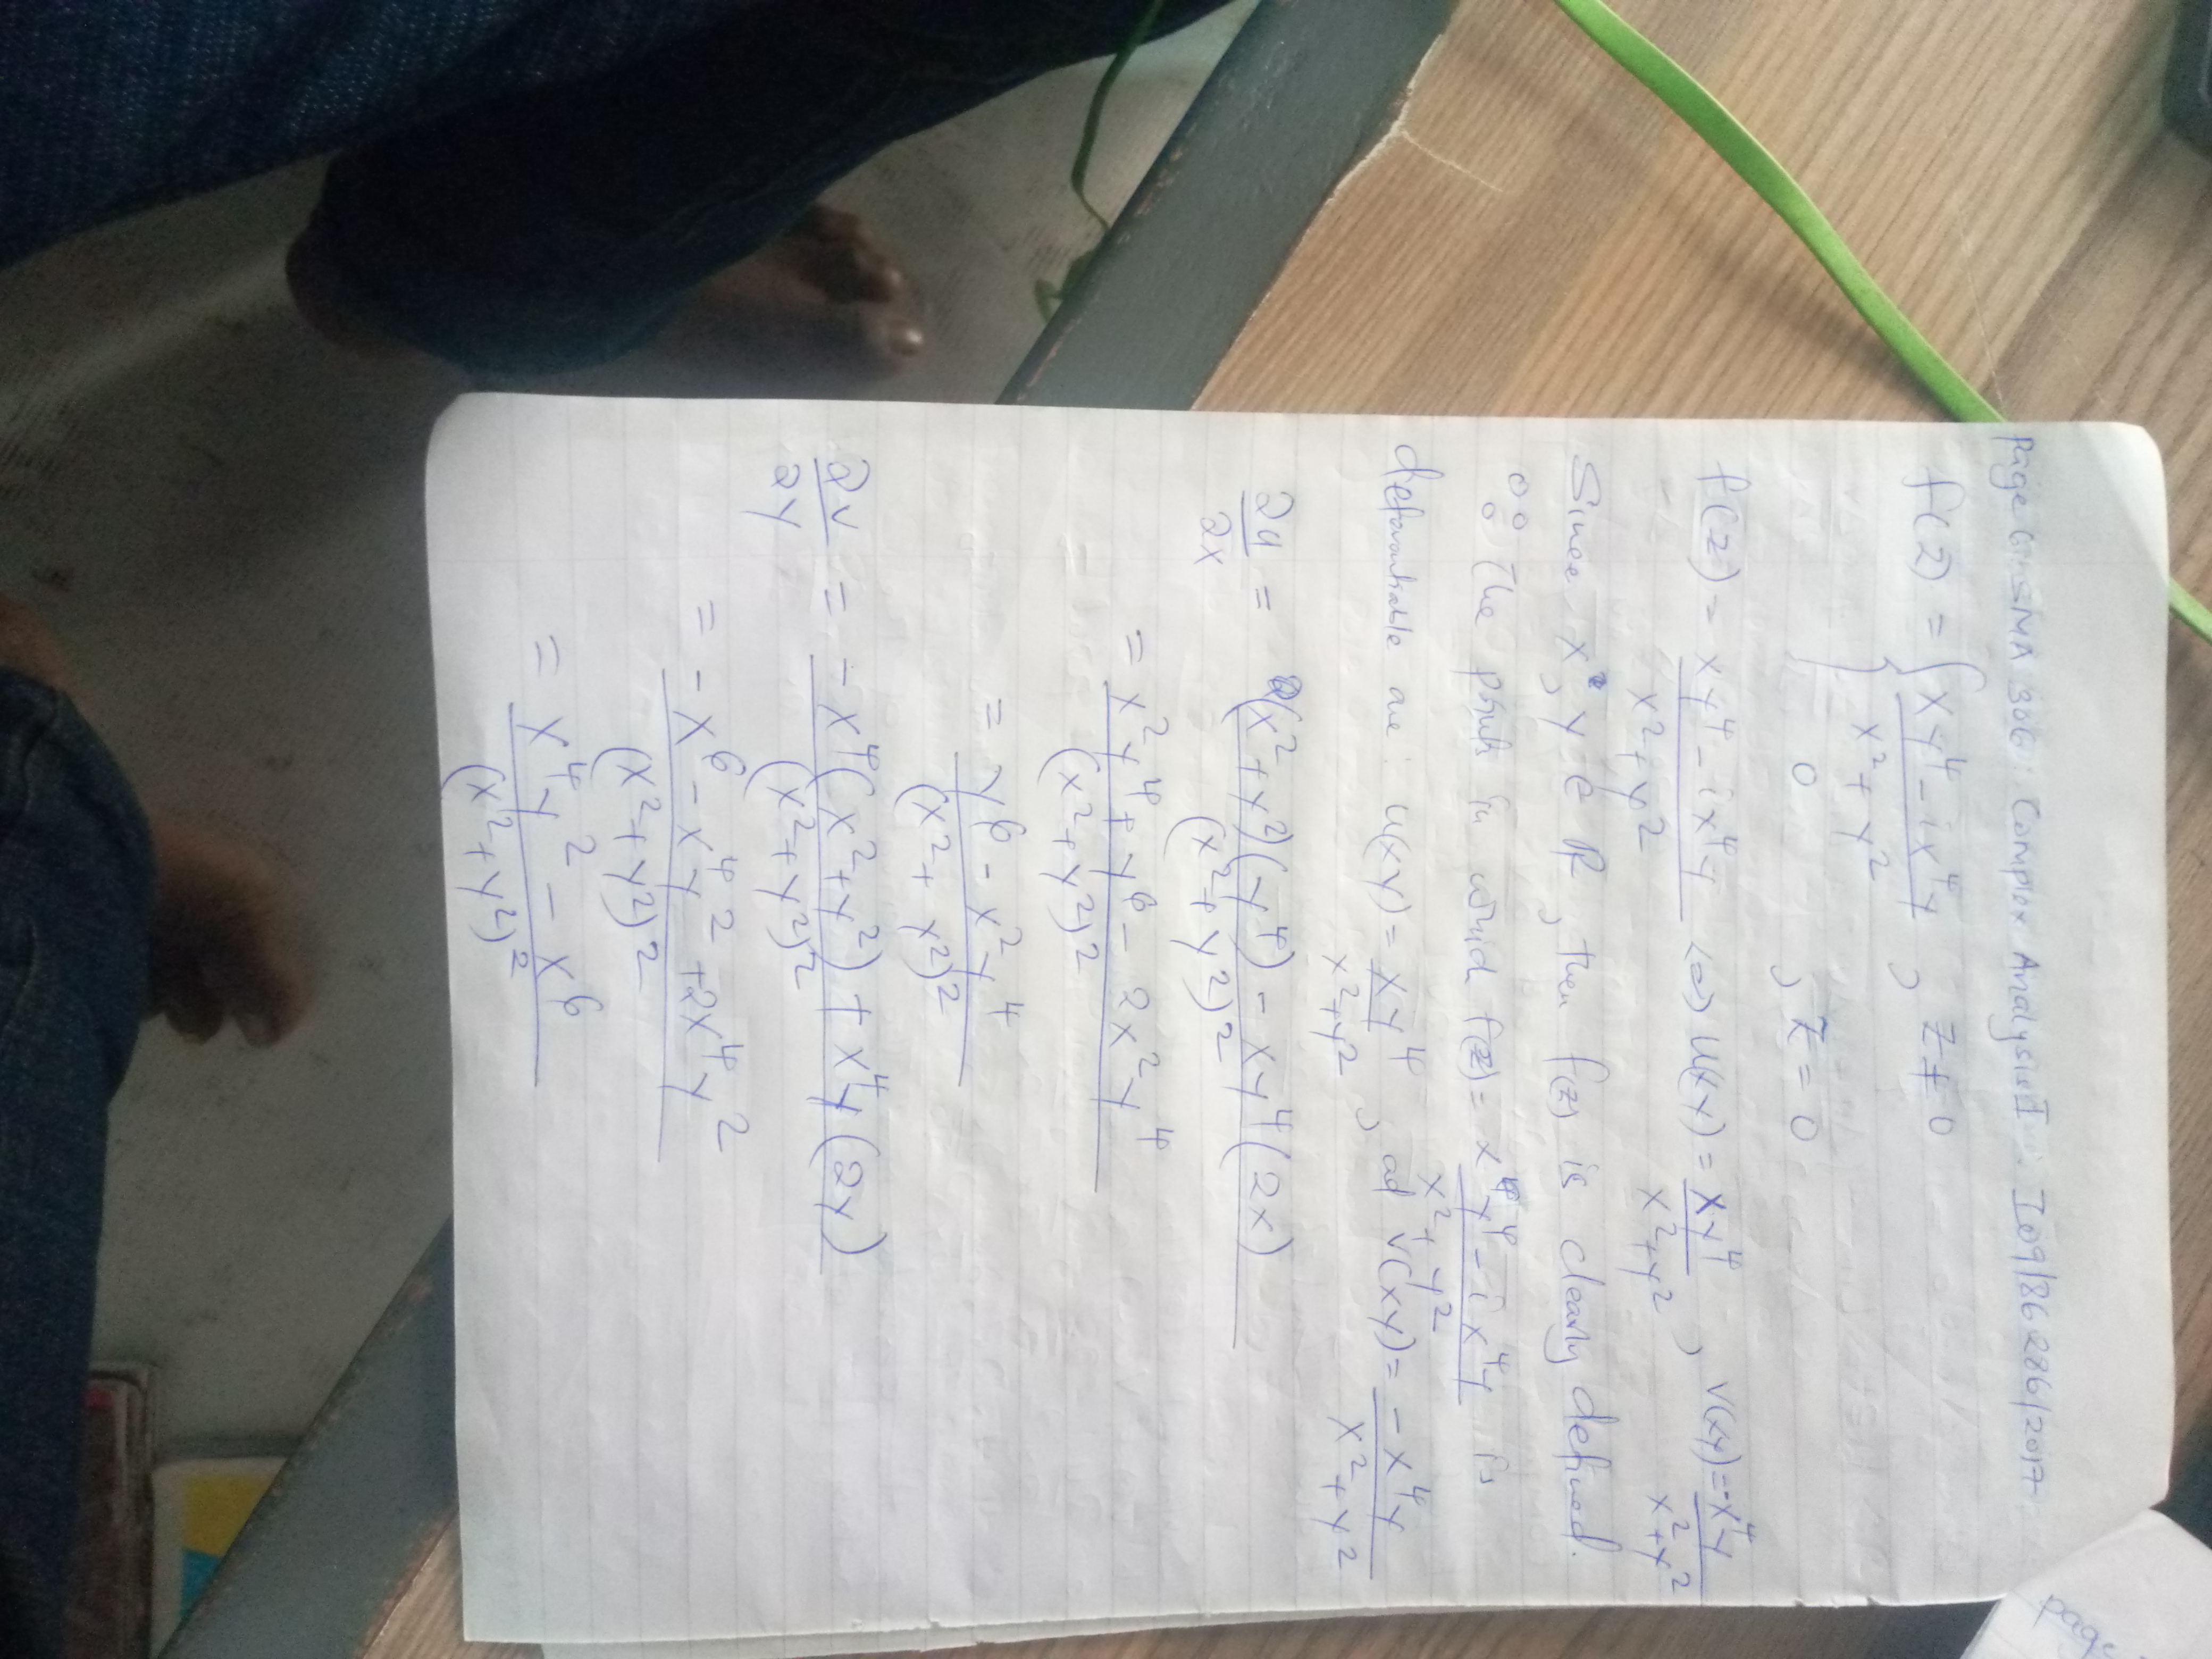 Page 6: SMA 306: Complex Analysis I: I09/86286/2017
f(z) = { xy⁴ - ix⁴y / x² + y² , z ≠ 0
0 , z = 0
f(z) = xy⁴ - ix⁴y / x² + y² <=> u(xy) = xy⁴ / x² + y² , v(xy) = -x⁴y / x² + y²
Since x, y ∈ ℝ, then f(z) is clearly defined.
The in f(z) = x y⁴ - i x⁴y / x² + y² is
are : u(xy) = xy⁴ / x² + y² , ad v(xy) = -x⁴y / x² + y²
∂u/∂x = (x² + y²)(y⁴) - xy⁴(2x) / (x² + y²)²
= x²y⁴ + y⁶ - 2x²y⁴ / (x² + y²)²
= y⁶ - x²y⁴ / (x² + y²)²
∂v/∂y = -x⁴(x² + y²) + x⁴y(2y) / (x² + y²)²
= -x⁶ - x⁴y² + 2x⁴y² / (x² + y²)²
= x⁴y² - x⁶ / (x² + y²)²
page